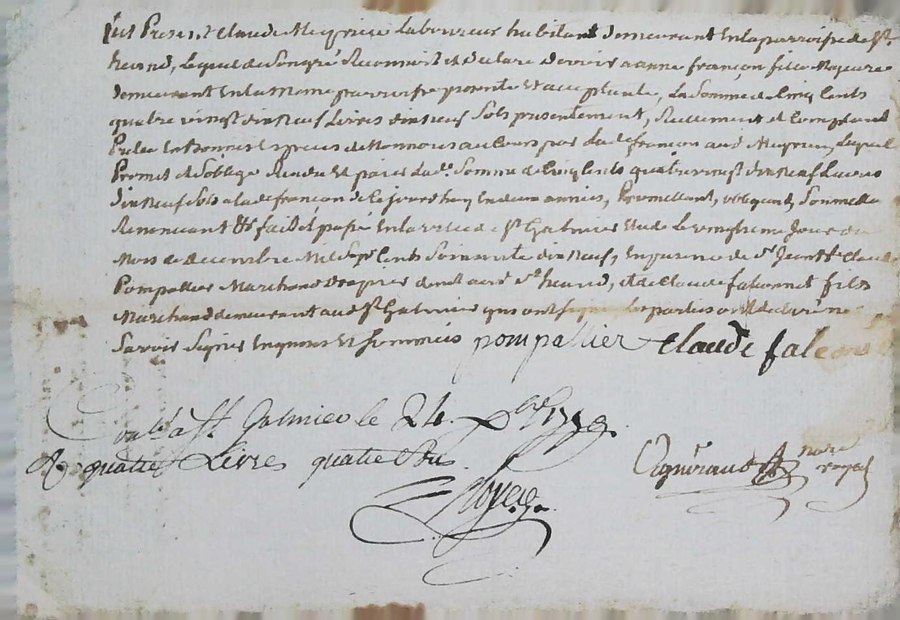 fut Present Claude Laboureur habitant demeurant en la parroisse de St
heand, Lequel de son gré Reconnoit et declare devoir a anne françon fille Majeure
demeurant en la meme parroisse presente et acceptante, La Somme de Cinq Cents
quatre vingt dix neuf Livres dix neuf Sols presentement, et Comptant
en bonnes Espèces de Monnoye au Cours par Lad. françon aud. Lequel
Promet & S'oblige Rendre et paier Lad. Somme de Cinq Cents quatre vingt dix neuf Livres
dix neuf Sols a lad. françon de Ce jourd'huy en deux années, Promettant, obligeant, Soumettant
Renonçant &c fait et passé en la ville de St Galmier Etude Le vingtieme Jour du
Mois de decembre Mil Sept Cents Soixante dix neuf, En presence de Sr Claude
Pompallier Marchand aud. St heand, et de Claude falconnet fils
Marchand demeurant aud. St Galmier qui ont signé Les parties ont declaré ne
Savoir Signer Enquises et Sommées pompallier Claude
a St Galmier le 24. Xbre 1779
quatre Livres quatre
nore
royal